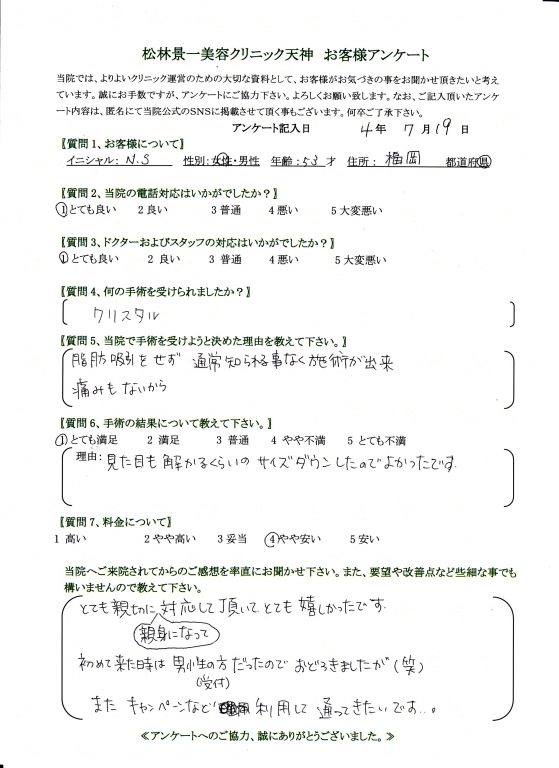 松林景一美容クリニック天神 お客様アンケート
当院では、よりよいクリニック運営のための大切な資料として、お客様がお気づきの事をお聞かせ頂きたいと考え
ています。誠にお手数ですが、アンケートにご協力下さい。よろしくお願い致します。なお、ご記入頂いたアンケ
ート内容は、匿名にて当院公式のSNSに掲載させて頂く事もございます。何卒ご了承下さい。
アンケート記入日 4年 7月19日
【質問1、お客様について】
イニシャル: N.S 性別:女性・男性 年齢:53才 住所: 福岡 都道府県
【質問2、当院の電話対応はいかがでしたか?】
1とても良い 2良い 3普通 4悪い 5大変悪い
【質問3、ドクターおよびスタッフの対応はいかがでしたか?】
1とても良い 2 良い 3 普通 4悪い 5大変悪い
【質問4、何の手術を受けられましたか?】
クリスタル
【質問5、当院で手術を受けようと決めた理由を教えて下さい。】
脂肪吸引をせず 通常知られる事なく施術が出来
痛みもないから
【質問6、手術の結果について教えて下さい。】
1とても満足 2 満足 3 普通 4 やや不満 5 とても不満
理由: 見た目も解かるくらいのサイズダウンしたのでよかったです.
【質問7、料金について】
1 高い 2やや高い 3妥当 4やや安い 5安い
当院へご来院されてからのご感想を率直にお聞かせ下さい。また、要望や改善点など些細な事でも
構いませんので教えて下さい。
とても親切に対応して頂いてとても嬉しかったです.
親身になって
初めて来た時は男性の方だったのでおどろきましたが(笑)
(受付)
また キャンペーンなど 利用して 通ってきたいです...。
≪アンケートへのご協力、誠にありがとうございました。≫